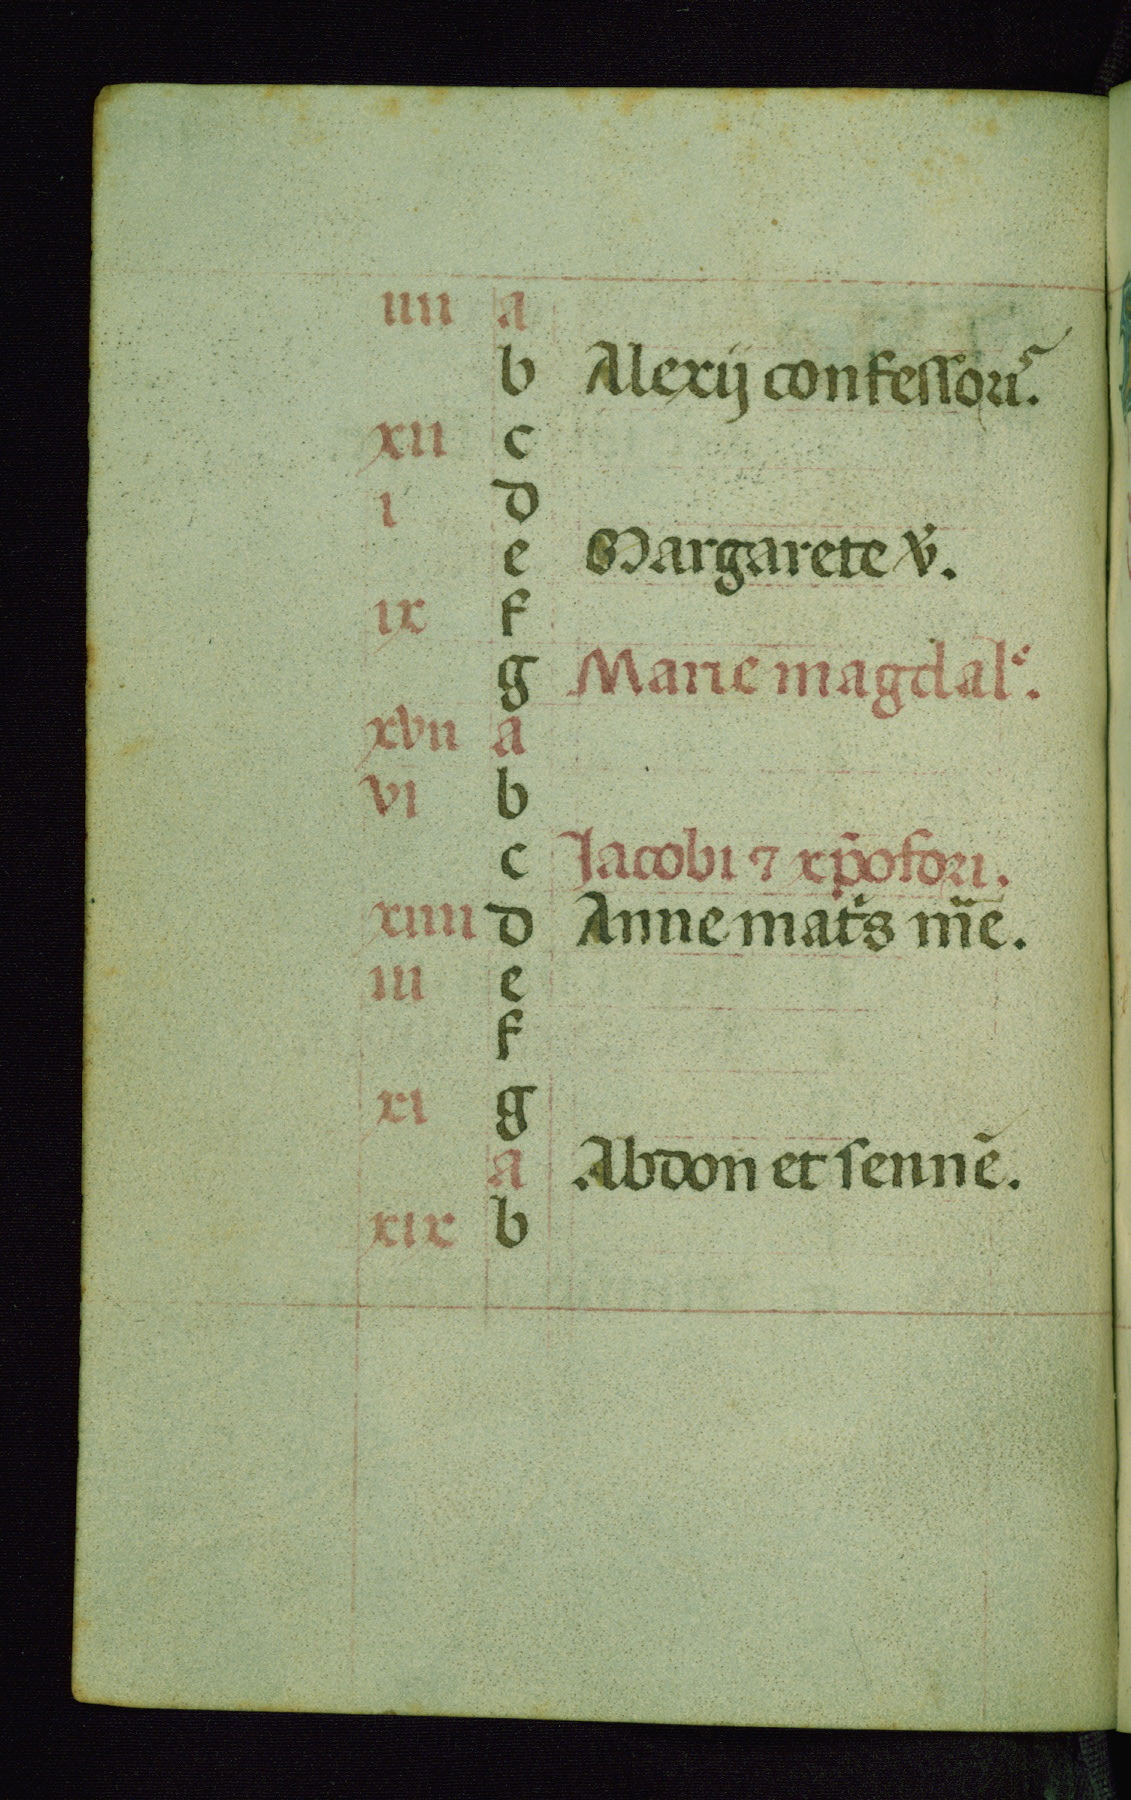 iiii a
b Alexij confessoris.
xii c
i d
e Margarete v̄.
ix f
g Marie magdalᵉ.
xvii a
vi b
c Jacobi ⁊ xp̄ofori.
xiiii d Anne mat̄s m̄ie.
iii e
f
xi g
a Abdon et sennē.
xix b